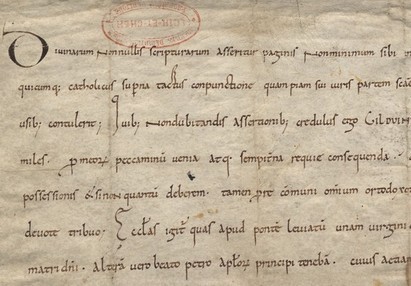 Diuinarum Nonnullis scripturarum asseritur paginis Nonminimum sibi
quicumq; catholicus supna tactus conpunctione quampiam sui iuris partem
usib; contulerit; Quib; Nondubitandis assertionib; credulus ego
miles. p meor peccaminu uenia atq sempitna requie consequenda.
possessionis & sinon quantu deberem. tamen p re comuni omium
deuote tribuo. Ecclas igit quas apud ponte leuiatu unam uirgini
matri dni. Altera uero beato petro aplor principi teneba. cuius